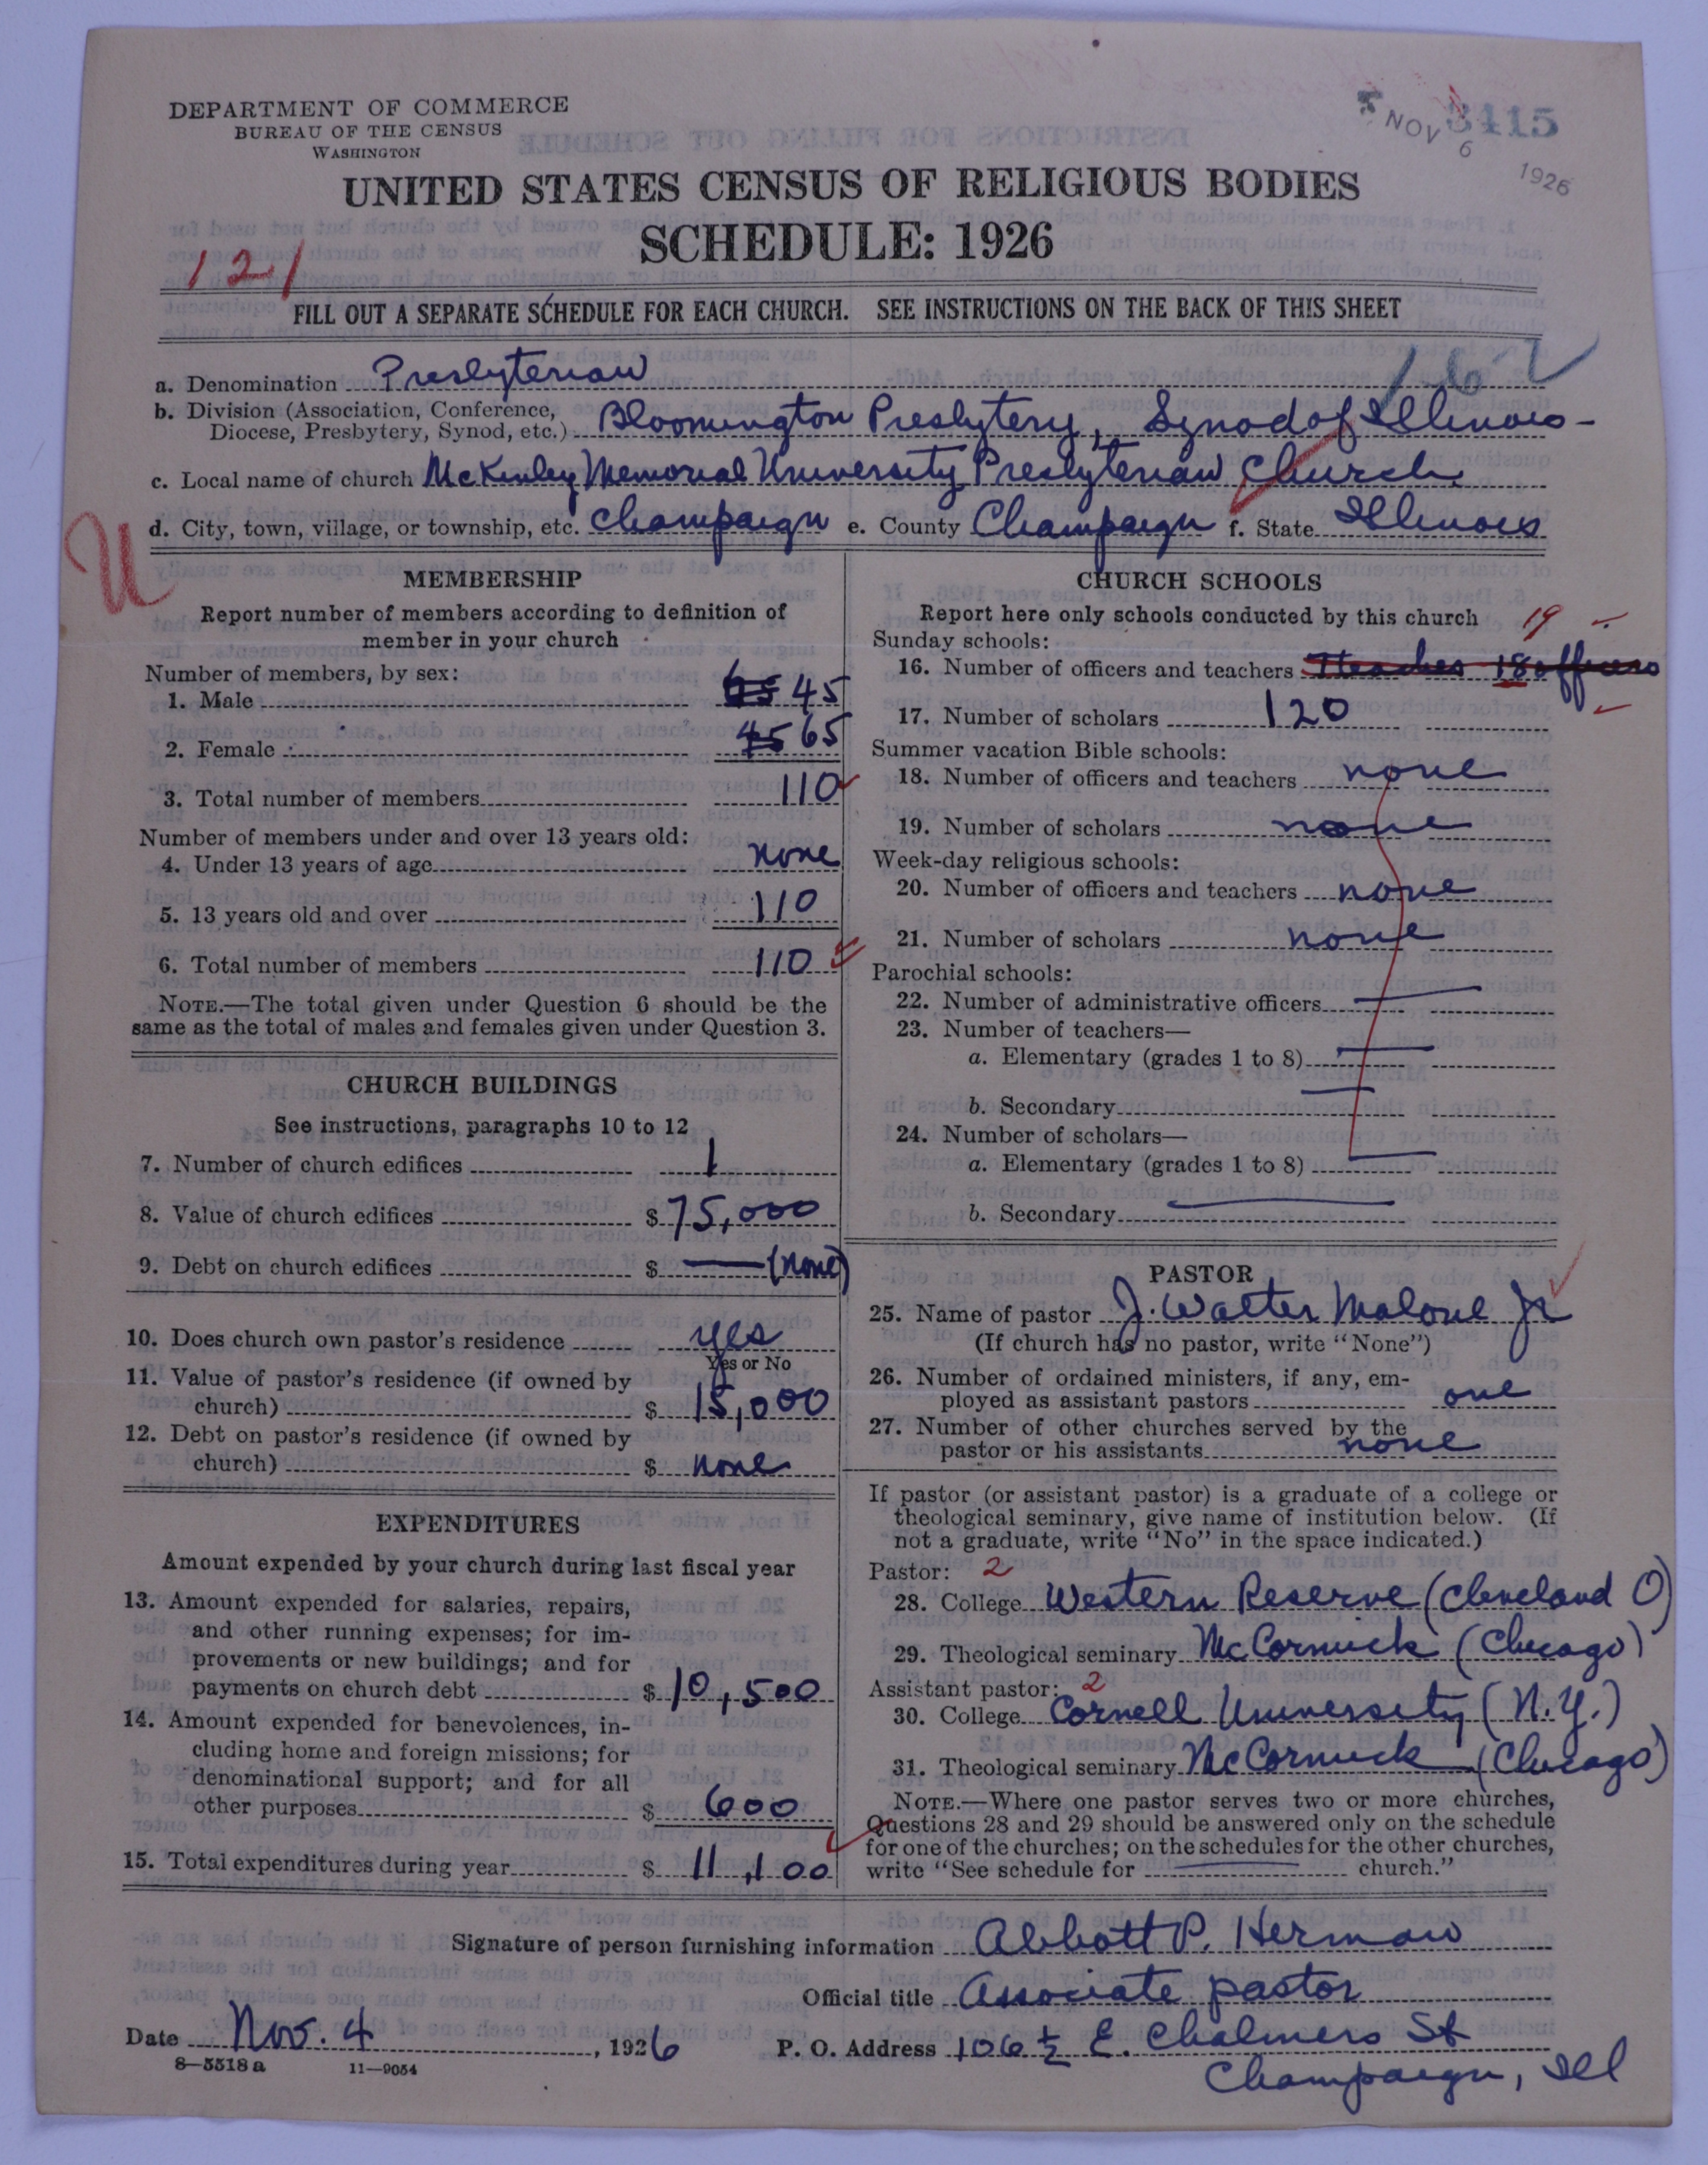 DEPARTMENT OF COMMERCE
BUREAU OF THE CENSUS
WASHINGTON
NOV 6 1926
3415
UNITED STATES CENSUS OF RELIGIOUS BODIES
SCHEDULE: 1926
121
FILL OUT A SEPARATE SCHEDULE FOR EACH CHURCH. SEE INSTRUCTIONS ON THE BACK OF THIS SHEET
162
a. Denomination Presbyterian
b. Division (Association, Conference,
Diocese, Presbytery, Synod, etc.) Bloomington Presbytery, Synod of Illinois-
c. Local name of church McKinley Memorial University Presbyterian Church
d. City, town, village, or township, etc. Champaign e. County Champaign f. State Illinois
U
MEMBERSHIP
Report number of members according to definition of
member in your church
Number of members, by sex:
1. Male 65 45
2. Female 45 65
3. Total number of members 110
Number of members under and over 13 years old:
4. Under 13 years of age none
5. 13 years old and over 110
6. Total number of members 110
NOTE.—The total given under Question 6 should be the
same as the total of males and females given under Question 3.
CHURCH BUILDINGS
See instructions, paragraphs 10 to 12
7. Number of church edifices 1
8. Value of church edifices $ 75,000
9. Debt on church edifices $ — (none)
10. Does church own pastor's residence yes
Yes or No
11. Value of pastor's residence (if owned by
church) $ 15,000
12. Debt on pastor's residence (if owned by
church) $ none
EXPENDITURES
Amount expended by your church during last fiscal year
13. Amount expended for salaries, repairs,
and other running expenses; for im-
provements or new buildings; and for
payments on church debt $ 10,500
14. Amount expended for benevolences, in-
cluding home and foreign missions; for
denominational support; and for all
other purposes $ 600
15. Total expenditures during year $ 11,100
CHURCH SCHOOLS
Report here only schools conducted by this church 19
Sunday schools:
16. Number of officers and teachers 18 officers
17. Number of scholars 120
Summer vacation Bible schools:
18. Number of officers and teachers none
19. Number of scholars none
Week-day religious schools:
20. Number of officers and teachers none
21. Number of scholars none
Parochial schools:
22. Number of administrative officers —
23. Number of teachers—
a. Elementary (grades 1 to 8) —
b. Secondary —
24. Number of scholars—
a. Elementary (grades 1 to 8) —
b. Secondary —
PASTOR
25. Name of pastor J. Walter Malone Jr
(If church has no pastor, write "None")
26. Number of ordained ministers, if any, em-
ployed as assistant pastors one
27. Number of other churches served by the
pastor or his assistants none
If pastor (or assistant pastor) is a graduate of a college or
theological seminary, give name of institution below. (If
not a graduate, write "No" in the space indicated.)
Pastor: 2
28. College Western Reserve (Cleveland O)
29. Theological seminary McCormick (Chicago)
Assistant pastor: 2
30. College Cornell University (N.Y.)
31. Theological seminary McCormick (Chicago)
NOTE.—Where one pastor serves two or more churches,
Questions 28 and 29 should be answered only on the schedule
for one of the churches; on the schedules for the other churches,
write "See schedule for — church."
Signature of person furnishing information Abbott P. Herman
Official title Associate pastor
Date Nov. 4, 1926 P. O. Address 106 ½ E. Chalmers St
Champaign, Ill
8—5518a 11—9054